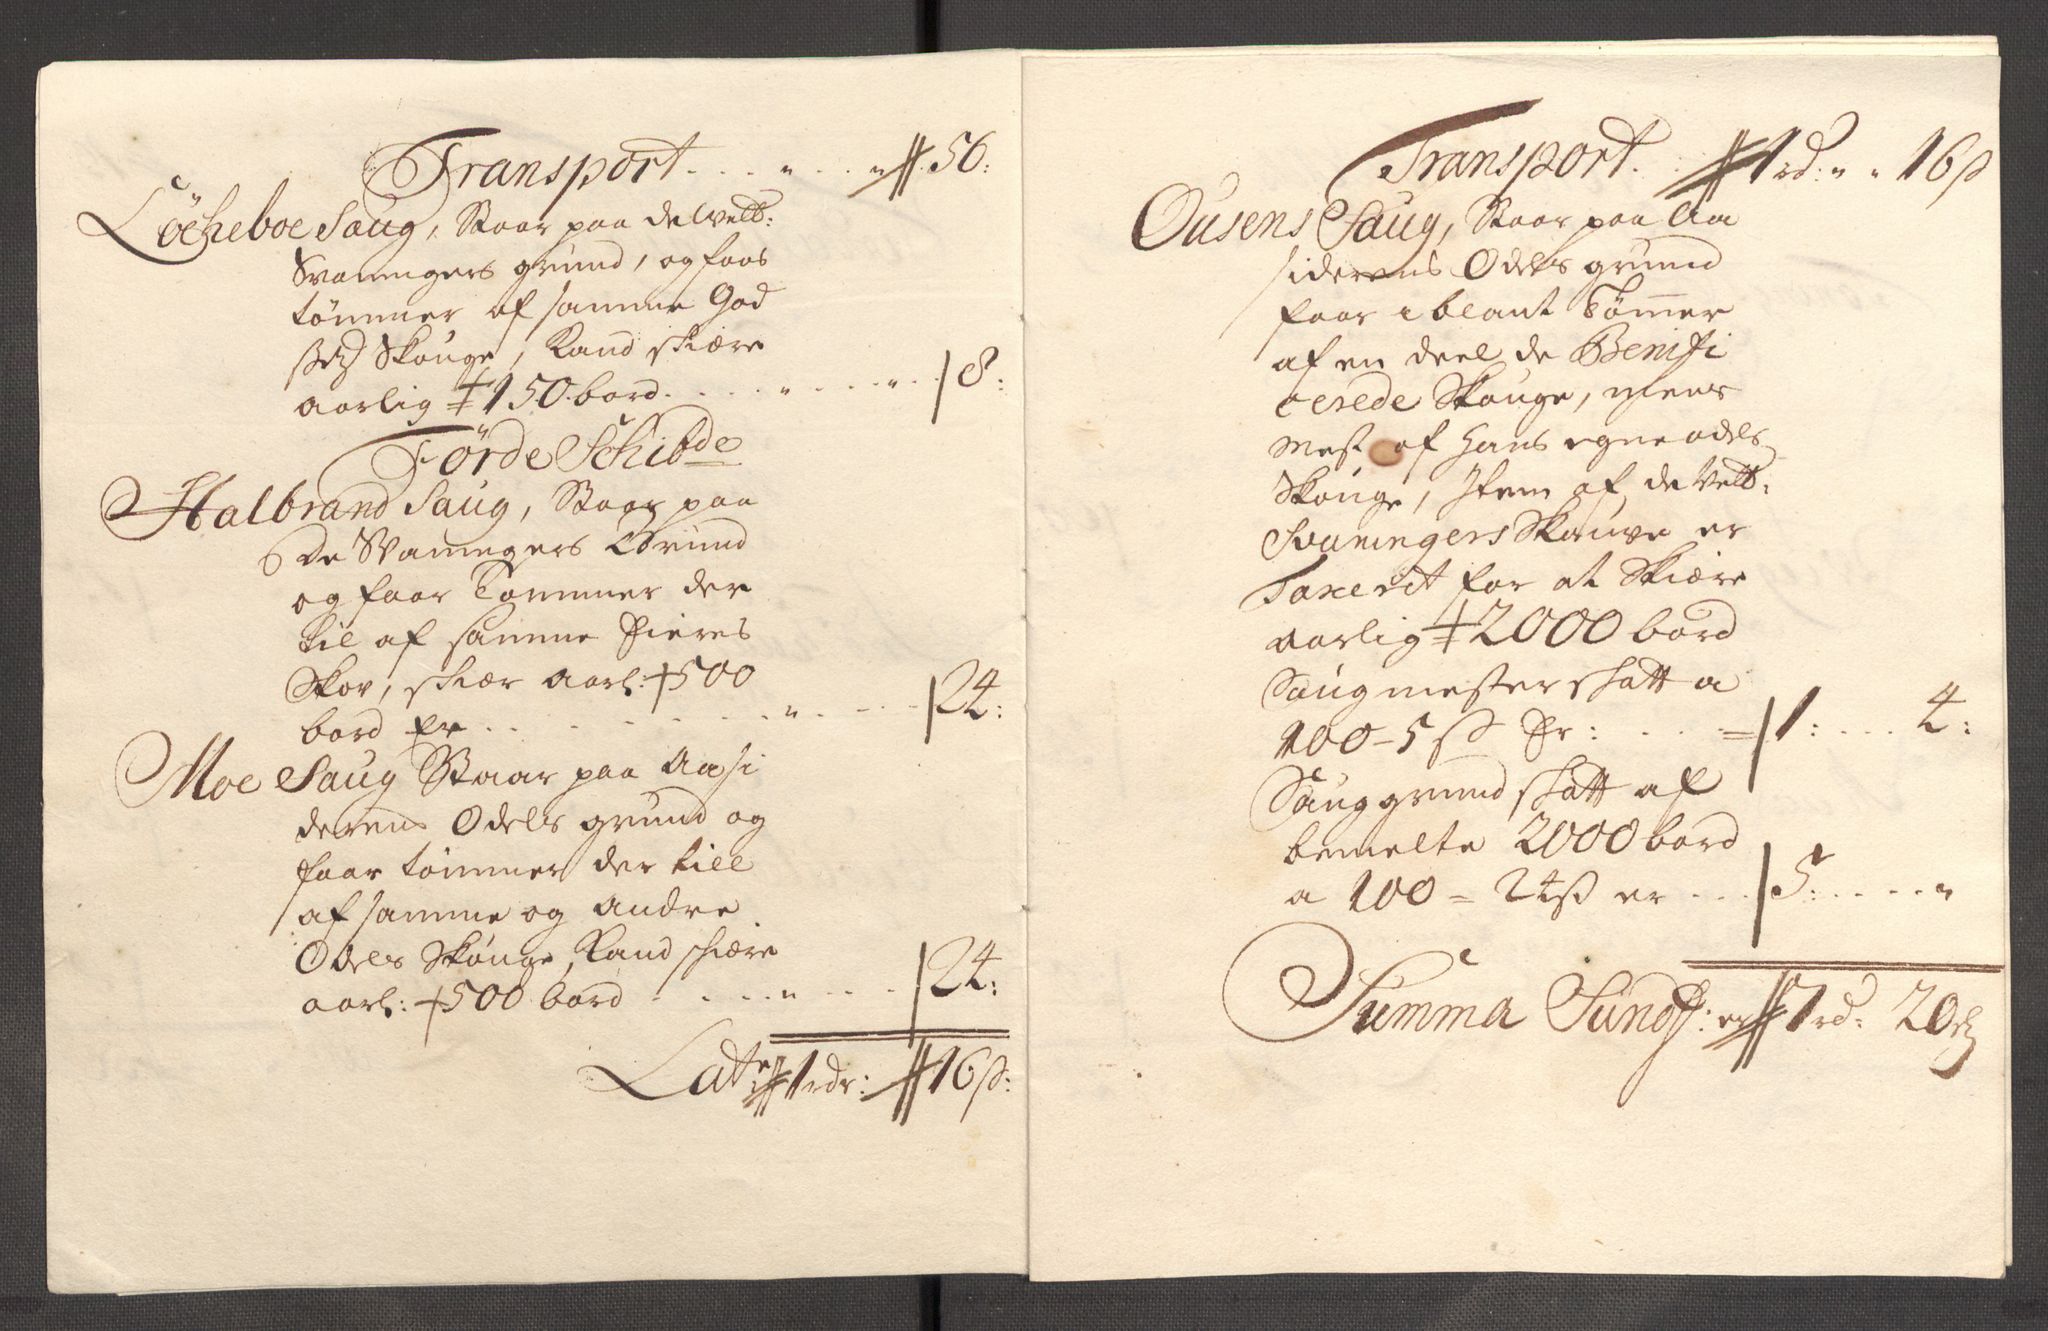 Transport . . . " . . . " # 56:
Löcheboe Saug, Staar paa de Welb:
Svaningers grund, og faar
tömmer af samme God
setz Skouge, Kand skiære
aarlig ‡ 150. bord. . . . . " . . . ". . 8:
Förde Schibde
Halbrand Saug, Staar paa
De Svaningers Grund
og faar Tommer der
til af samme Dieres
Skov, skiær aarl: ‡ 500
bord er . . . . . . . " . . . . 24:
Moe Saug Staar paa Aasi
derens Odels grund og
faar tömmer der till
af samme og andre
Odels Skouge, Kand skiære
aarl: ‡ 500 bord . . . . " . . . 24:
Later # 1 rdr: # 16 ß:
Transport. . # 1 rd: " " 16 ß
Ousens Saug, Staar paa Aa
siderens Odels grund
faar iblant Tömmer
af en deel de Benifi
cerede Skouge, mens
mest af hans egne odels
Skouge, Item af de Velb:
Svaningers Skouve er
Taxerit for at Skiære
aarlig ‡ 2000 bord
Saugmester skatt a
100 - 5 ß er: . . . = 1: . . . 4:
Saug grund skatt af
bemelte 2000 bord
a 100 = 24 ß er . . . 5: . . . . "
Summa Sundf: er # 7 rd: 20 ß